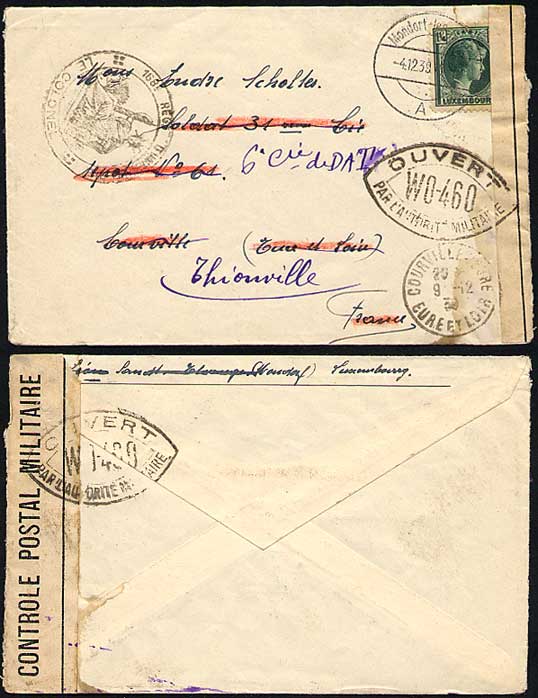 Mondorf-les
-4.12.39
A
LUXEMBOURG
168e RÉG
LE COLONEL
Mons Scholtes
Soldat 31 eme Cie
Depot No 61. 6e Cie de DAT
Courville (Eure et Loir)
Thionville
France
OUVERT
WO-460
PAR L'AUTORITÉ MILITAIRE
COURVILLE EURE
9-12
39
EURE ET LOIR
Luxembourg.
CONTROLE POSTAL MILITAIRE
OUVERT
460
PAR L'AUTORITÉ MILITAIRE